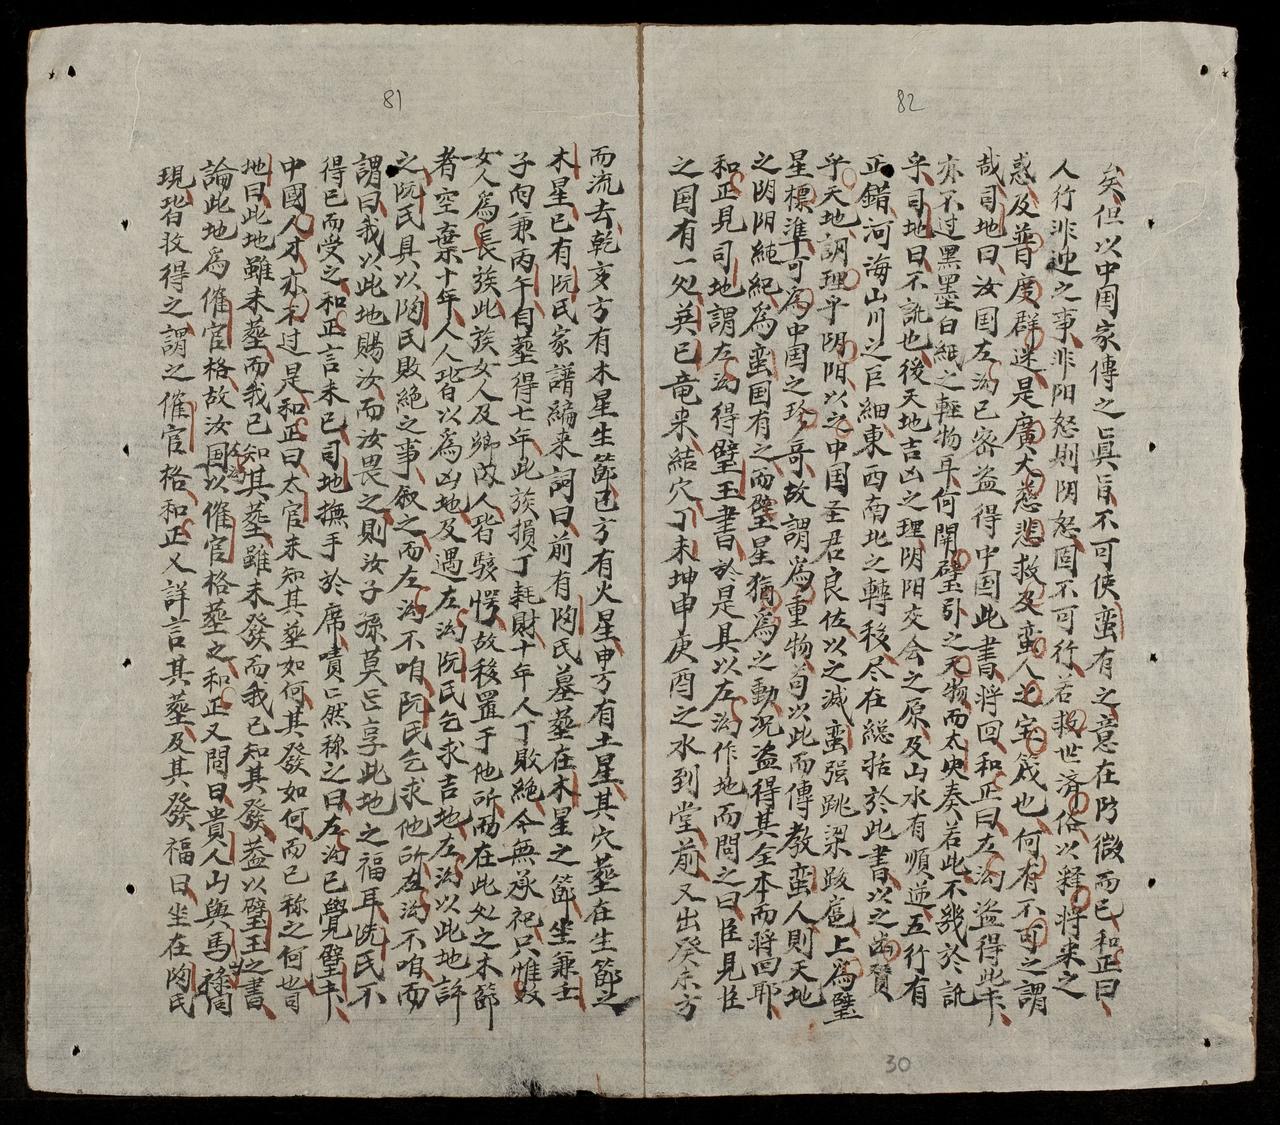 82
矣但以中国家傳之眞旨不可使蛮有之意在防微而已和正曰
人行非迎之事非阳怒則阴怒固不可行若救世済俗以释将来之
惑及普度群迷是廣大慈悲救及蛮人之宝筏也何有不可之謂
哉司地曰汝国左沟已密盗得中国此書将回和正曰左沟盗得此卞
亦不过黑墨白紙之軽物耳何開璧引之天物而太史奏若此不幾於訛
乎司地曰不訛也後天地吉凶之理阴阳交会之原及山水有順逆五行有
正錯河海山川之巨細東西南北之轉移尽在総括於此書以之幽贊
乎天地調理乎阴阳以之中国圣君良佐以之减蛮强跳梁跋扈上為璧
星標準可為中国之珍哥故謂為重物苟以此而傳教蛮人則天地
之阴阳純紀為蛮国有之而璧星猶為之動况盗得其全本而将回耶
和正見司地謂左沟得璧玉書於是具以左沟作地而問之曰臣見臣
之国有一処英巳竜来結穴丁未坤申庚酉之水到堂前又出癸方
30
81
而流去乾亥方有木星生節巳方有火星申方有土星其穴塟在生節之
木星巳有阮氏家譜編来詞曰前有陶氏墓塟在木星之節坐兼壬
子向兼丙午自塟得七年此族損丁耗財十年人丁敗絶今無承祀只惟
女人爲長族此族女人及鄉故人皆駭愕故移置于他所而在此处之木節
者空棄十年人人皆以爲凶地及遇左沟阮氏乞求吉地左沟以此地許
之阮氏具以陶氏敗絶之事叙之而左沟不咱阮氏乞求他所左沟不咱而
謂曰我以此地賜汝而汝畏之則汝子孫莫㠯享此地之福耳阮氏不
得已而受之和正言未已司地撫手於席嘖㠯然称之曰左沟已覺璧卞
中國人才亦不过是和正曰太官未知其塟如何其發如何而已称之何也司
地曰此地雖未塟而我已知其塟雖未發而我已知其發葢以璧玉之書
論此地為催官格故汝国左沟以催官格塟之和正又問曰貴人山與馬祿同
現皆收得之謂之催官格和正又詳言其塟及其發福曰坐在陶氏